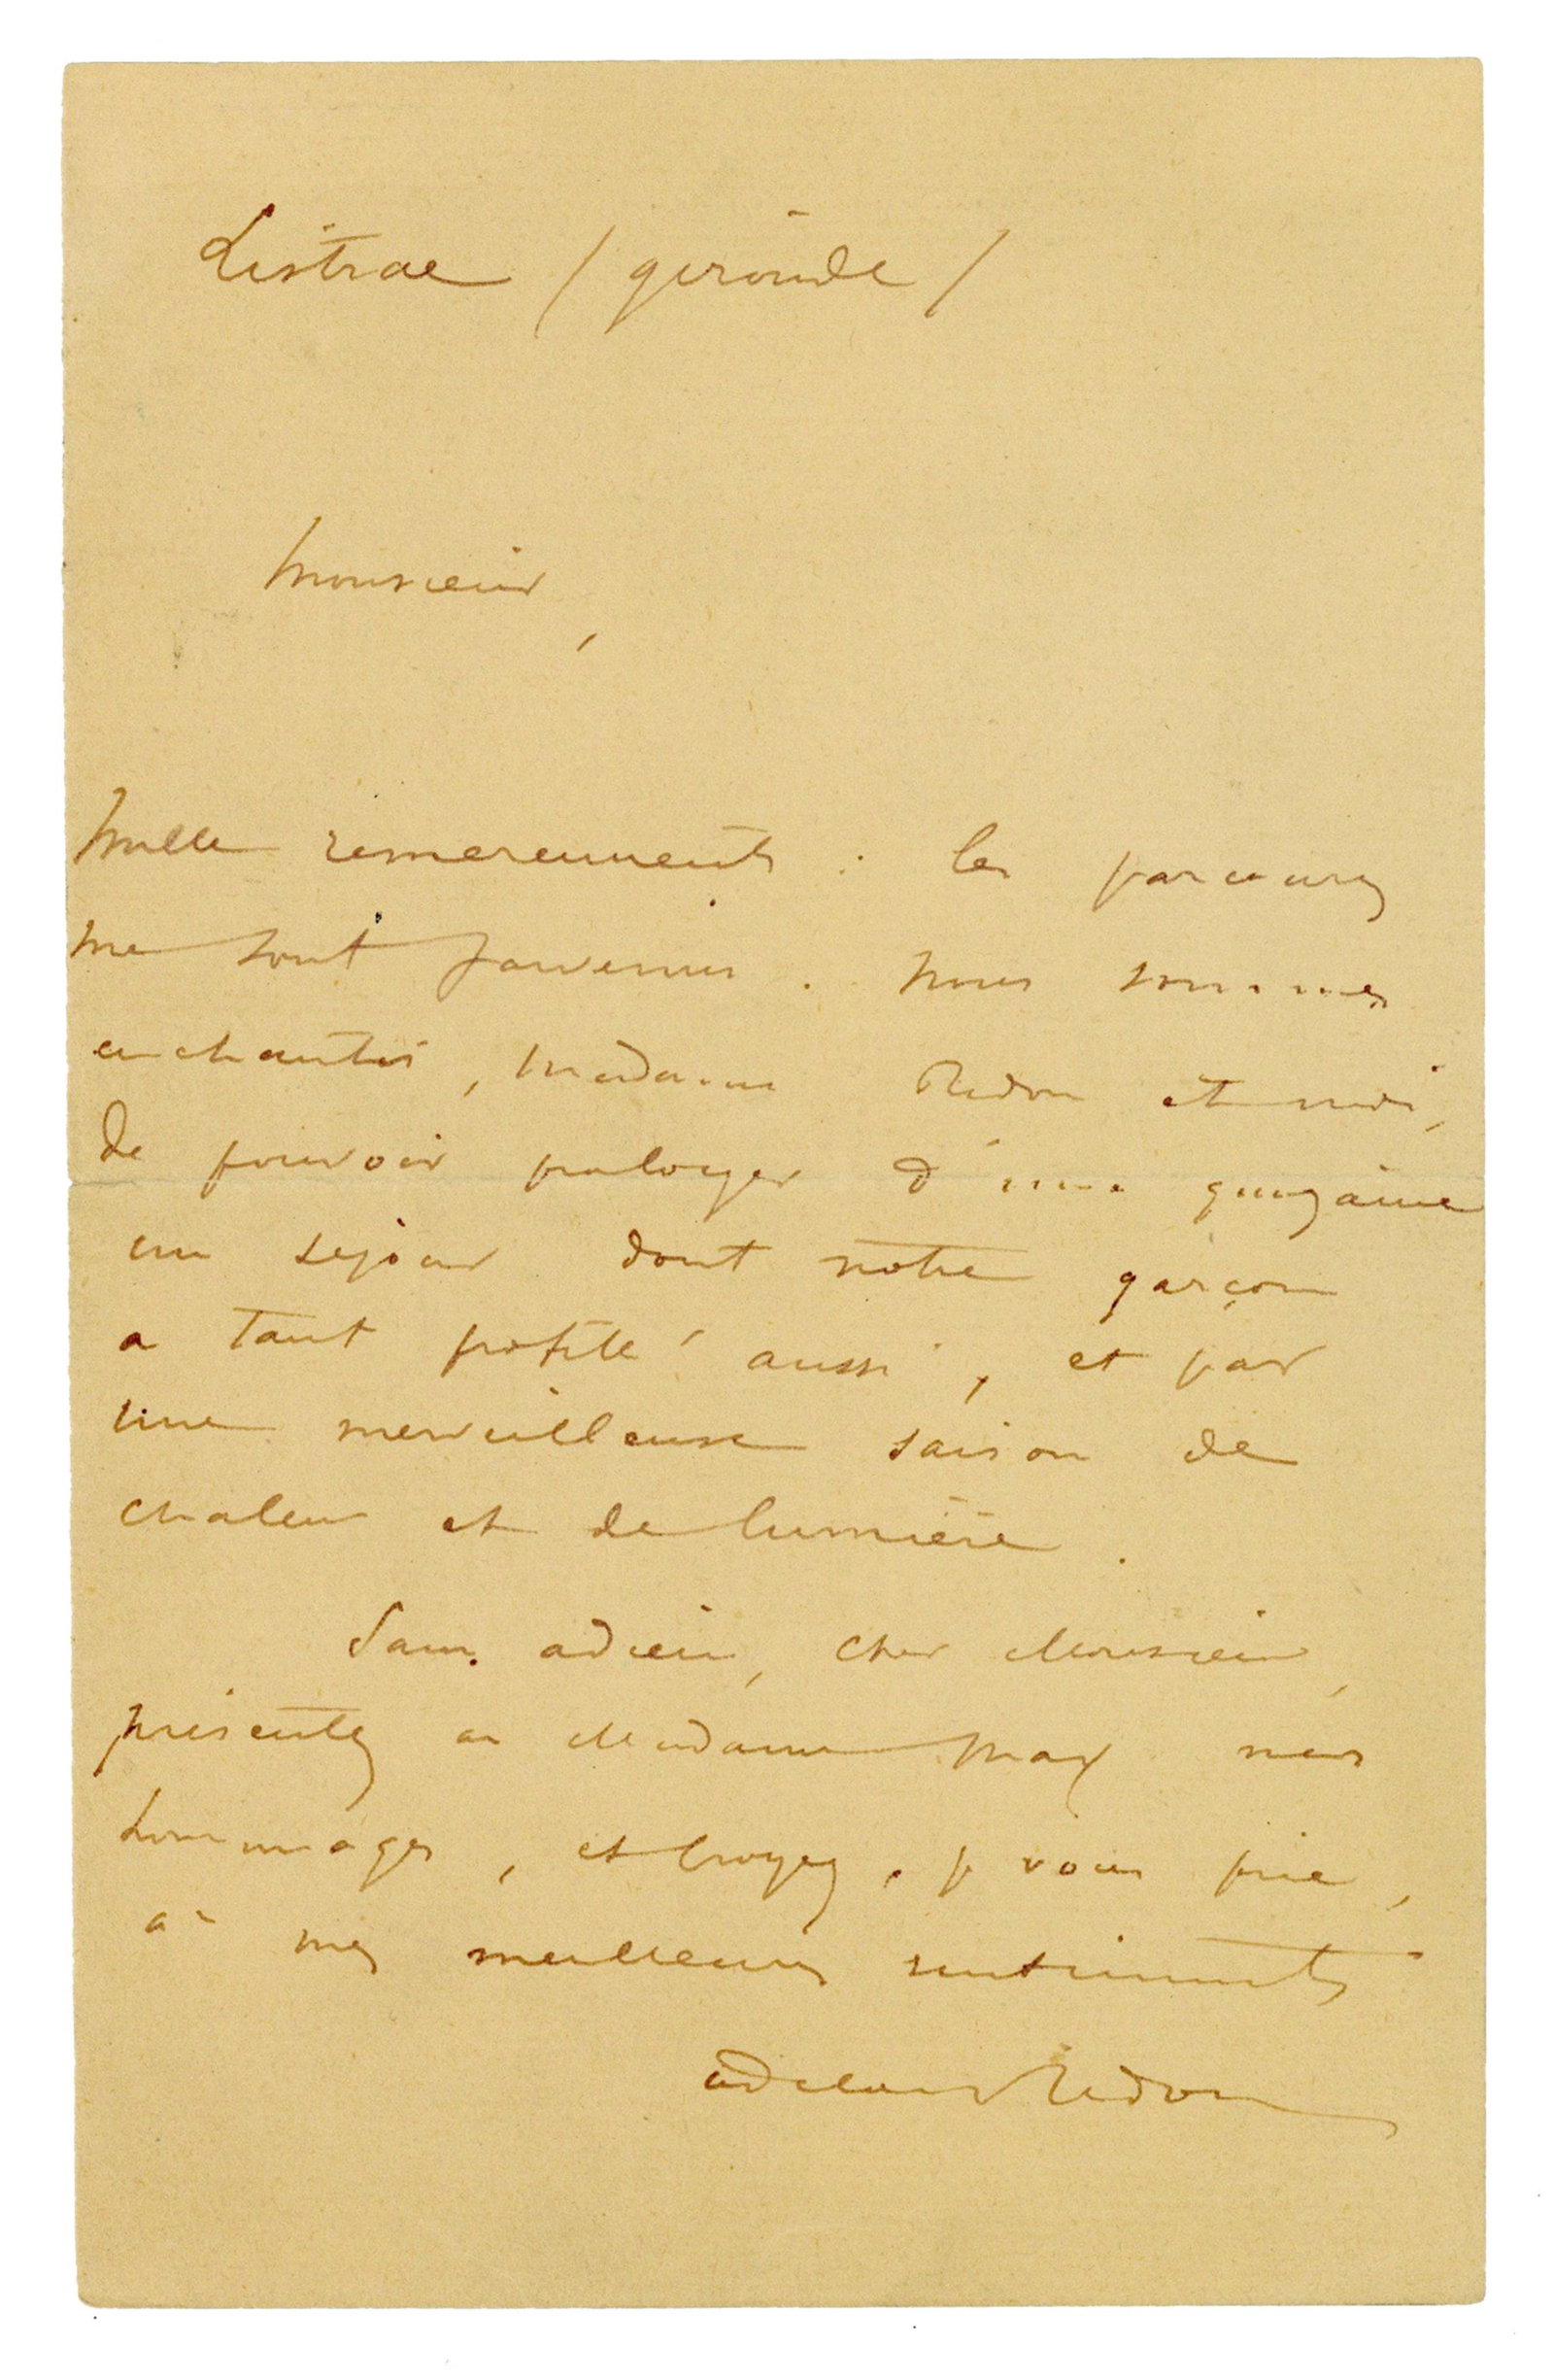 Listrac / gironde /
Monsieur,
Mille remerciements : les parcours
me sont parvenus. Nous sommes
enchantés, Madame Redon et moi,
de pouvoir prolonger d'une quinzaine
un séjour dont notre garçon
a tant profité aussi, et par
une merveilleuse saison de
chaleur et de lumière.
Sans adieu, cher Monsieur,
présentez à Madame May nos
hommages, et croyez, je vous prie,
à mes meilleurs sentiments
Odilon Redon